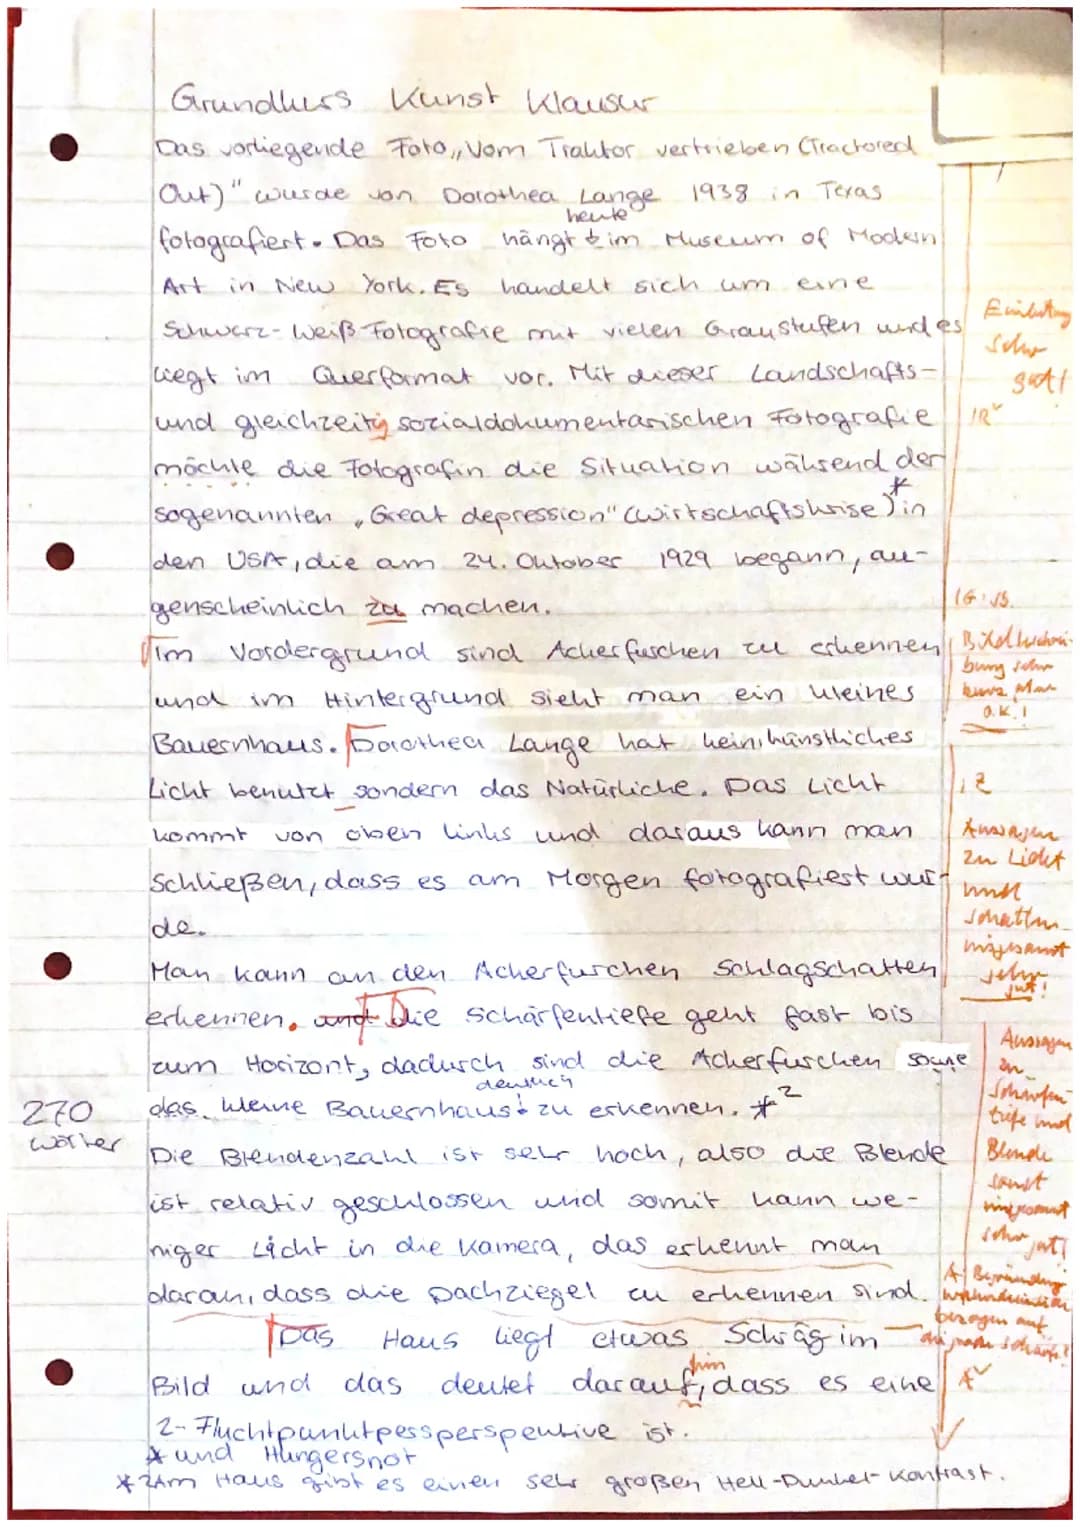 Grundkurs Kunst Klausur
Das vorliegende Foto „Vom Traktor vertrieben (Tractored
Out)" wurde von Dorothea Lange 1938 in Texas
heute
fotografiert. Das Foto hängt im Museum of Modern
Art in New York. Es handelt sich um eine
Schwarz-Weiß-Fotografie mit vielen Graustufen und es
liegt im Querformat vor. Mit dieser Landschafts-
und gleichzeitig sozialdokumentarischen Fotografie
möchte die Fotografin die Situation während der
sogenannten „Great depression" (Wirtschaftskrise)* in
den USA, die am 24. Oktober 1929 begann, au-
genscheinlich zu machen.
Im Vordergrund sind Ackerfurchen zu erkennen
und im Hintergrund sieht man ein kleines
Bauernhaus. Dorothea Lange hat kein künstliches
Licht benutzt sondern das Natürliche. Das Licht
kommt von oben links und daraus kann man
schließen, dass es am Morgen fotografiert wur-
de.
Man kann an den Ackerfurchen Schlagschatten
erkennen. und Die Schärfentiefe geht fast bis
zum Horizont, dadurch sind die Ackerfurchen sowie
deutlich
das kleine Bauernhaus zu erkennen. *2
Die Blendenzahl ist sehr hoch, also die Blende
ist relativ geschlossen und somit kann we-
niger Licht in die Kamera, das erkennt man
daran, dass die Dachziegel zu erkennen sind.
Das Haus liegt etwas Schräg im
hin
Bild und das deutet darauf, dass es eine
2-Fluchtpunktpersperspektive ist.
* und Hungersnot
*2 Am Haus gibt es einen sehr großen Hell-Dunkel-Kontrast.
270
Wörter
Einleitung
sehr
gut!
IR
Bildbeschrei-
bung sehr
kurz aber
o.K.!
Z
Aussagen
zu Licht
und
Schatten
insgesamt
sehr
gut!
Aussagen
zu
Schärfen-
tiefe und
Blende
sonst
insgesamt
sehr gut!
A